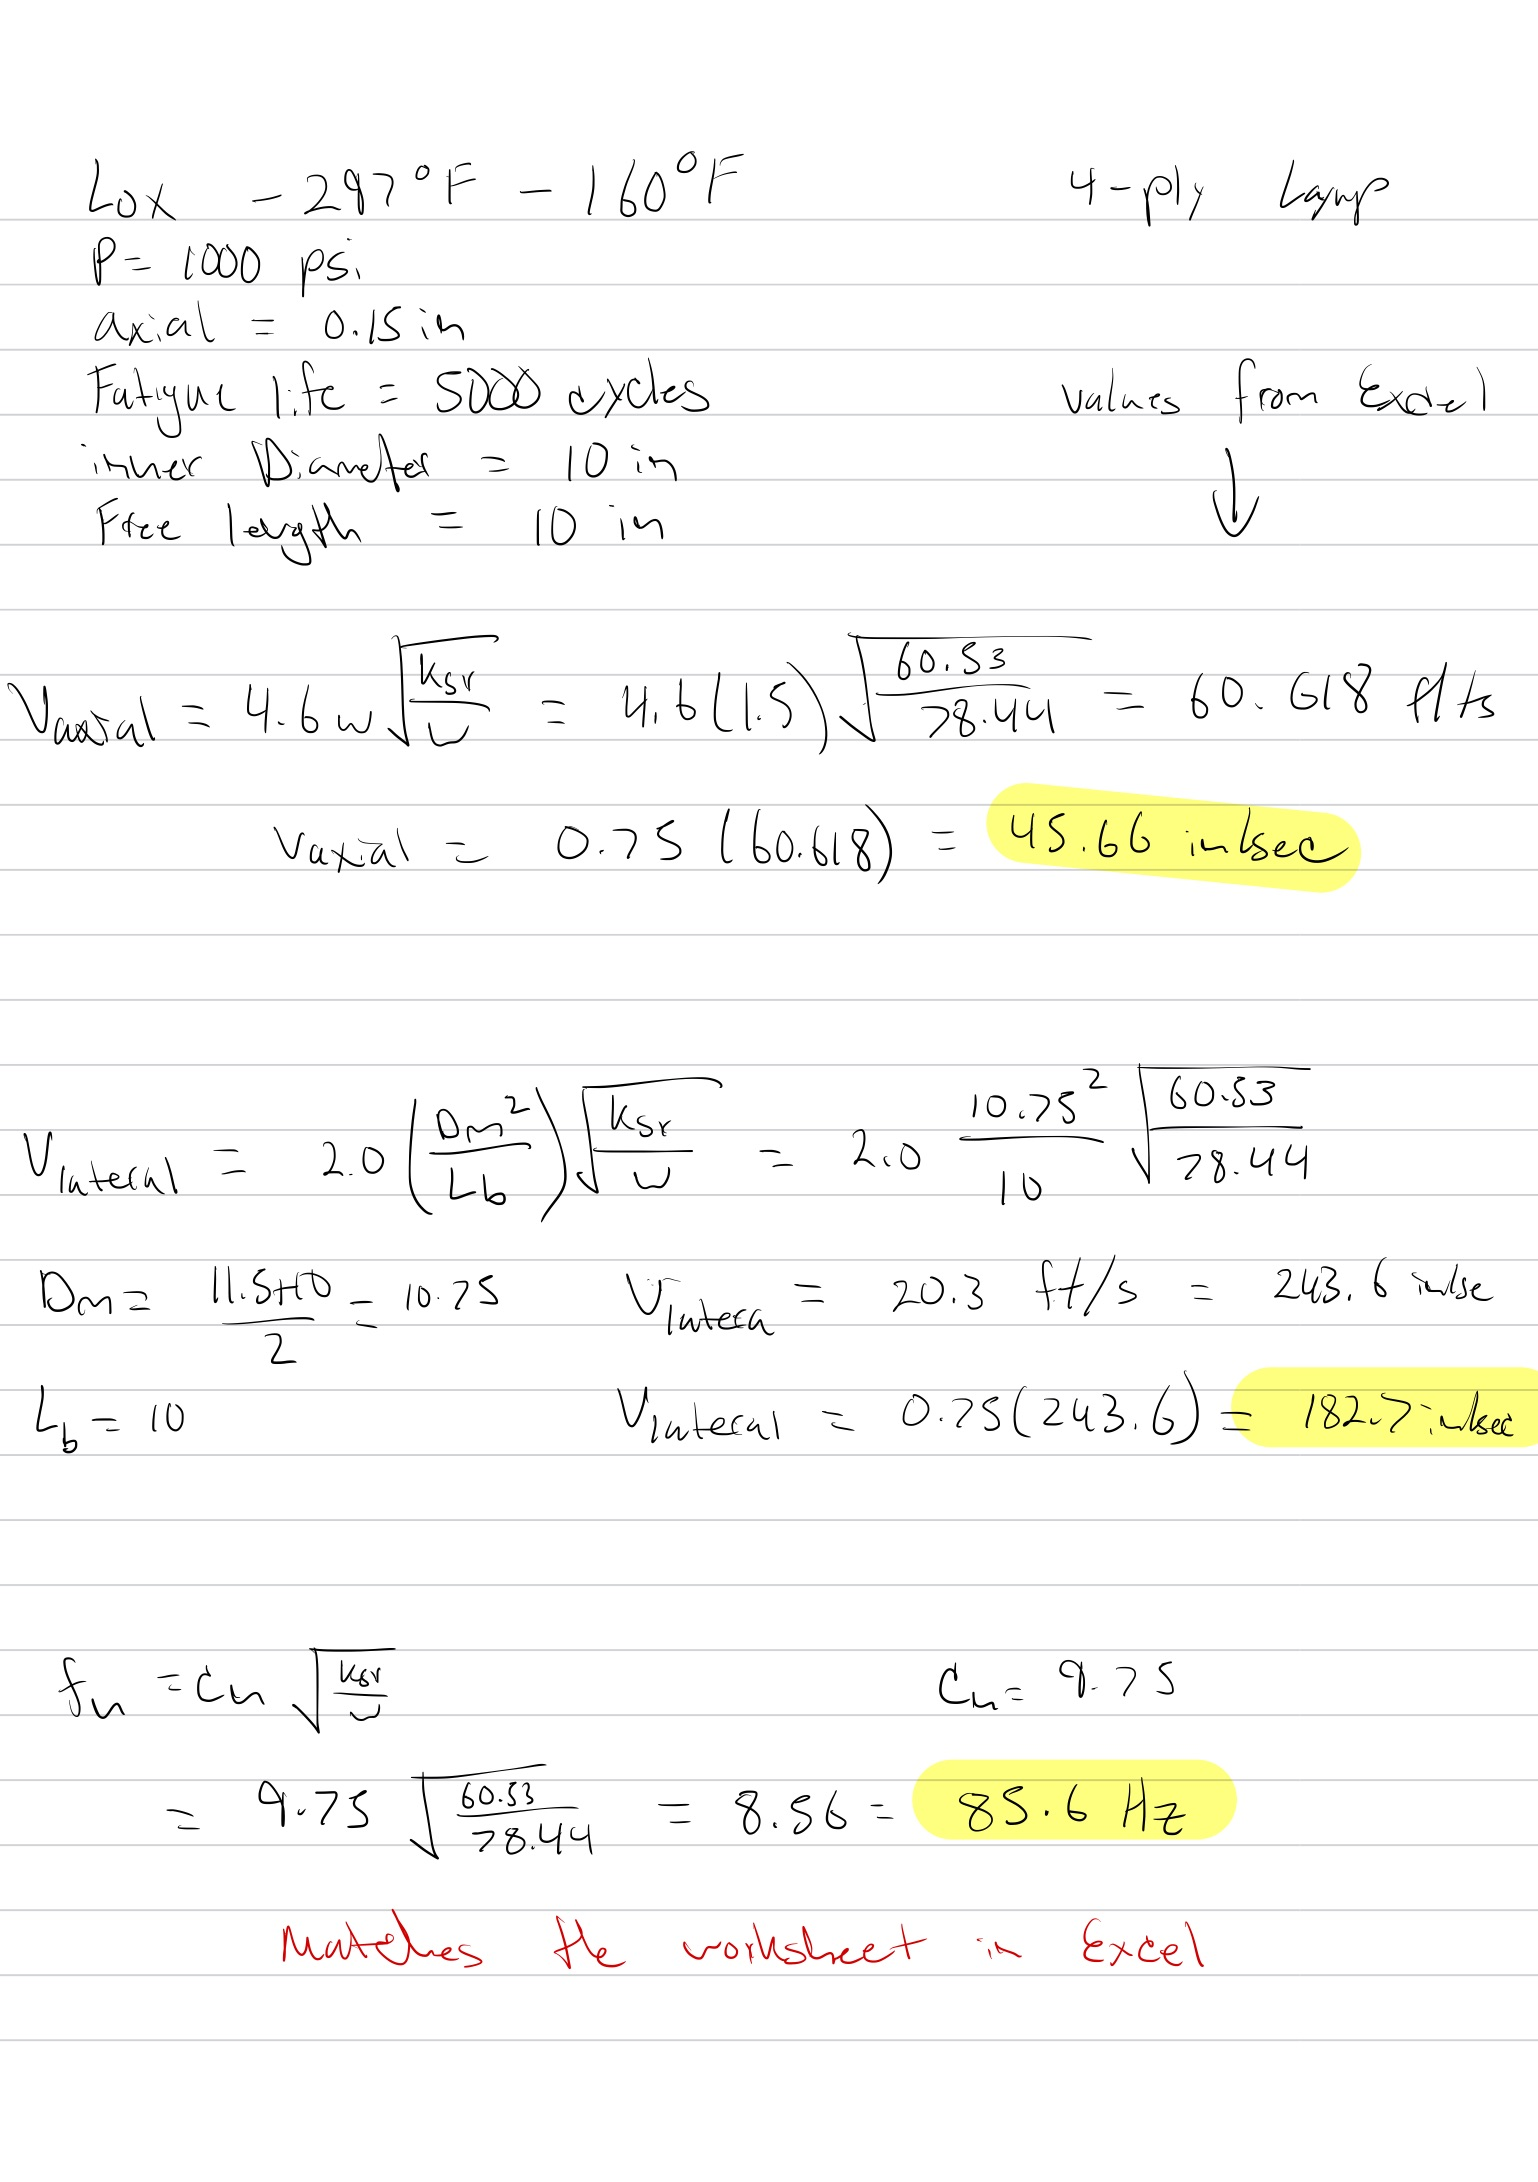 Lox - 297°F - 160°F
4-ply Layup
P = 1000 psi
axial = 0.15 in
Fatigue life = 5000 cycles
values from Excel ↓
inner Diameter = 10 in
Free length = 10 in
Vaxial = 4.6 w √(Ksr/w) = 4.6(1.5) √(60.53/78.44) = 60.618 ft/s
Vaxial = 0.75 (60.618) = 45.66 in/sec
Vlateral = 2.0 (Dm²/Lb) √(Ksr/w) = 2.0 10.75²/10 √(60.53/78.44)
Dm = (11.5+10)/2 = 10.75
Vlatera = 20.3 ft/s = 243.6 in/se
Lb = 10
Vlateral = 0.75(243.6) = 182.7 in/sec
fn = Cn √(Ksr/w)
Cn = 9.75
= 9.75 √(60.53/78.44) = 8.56 = 85.6 Hz
Matches the worksheet in Excel